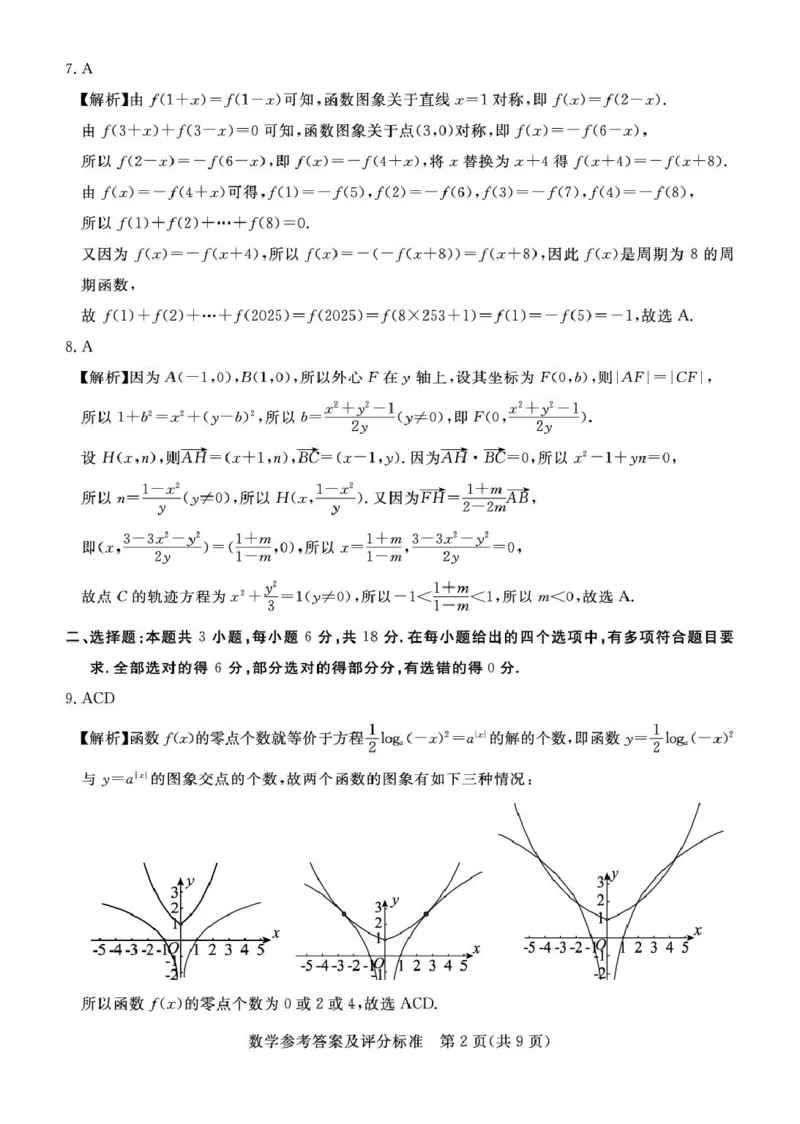 7. A
【解析】由 f(1+x)=f(1-x)可知,函数图象关于直线 x=1 对称,即 f(x)=f(2-x).
由 f(3+x)+f(3-x)=0 可知,函数图象关于点(3,0)对称,即 f(x)=-f(6-x),
所以 f(2-x)=-f(6-x),即 f(x)=-f(4+x),将 x 替换为 x+4 得 f(x+4)=-f(x+8).
由 f(x)=-f(4+x)可得,f(1)=-f(5),f(2)=-f(6),f(3)=-f(7),f(4)=-f(8),
所以 f(1)+f(2)+…+f(8)=0.
又因为 f(x)=-f(x+4),所以 f(x)=-(-f(x+8))=f(x+8),因此 f(x)是周期为 8 的周
期函数,
故 f(1)+f(2)+…+f(2025)=f(2025)=f(8×253+1)=f(1)=-f(5)=-1,故选 A.
8. A
【解析】因为 A(-1,0),B(1,0),所以外心 F 在 y 轴上,设其坐标为 F(0,b),则|AF|=|CF|,
所以 1+b²=x²+(y-b)²,所以 b=\frac{x²+y²-1}{2y}(y≠0),即 F(0,\frac{x²+y²-1}{2y}).
设 H(x,n),则\overrightarrow{AH}=(x+1,n),\overrightarrow{BC}=(x-1,y).因为\overrightarrow{AH}·\overrightarrow{BC}=0,所以 x²-1+yn=0,
所以 n=\frac{1-x²}{y}(y≠0),所以 H(x,\frac{1-x²}{y}).又因为\overrightarrow{FH}=\frac{1+m}{2-2m}\overrightarrow{AB},
即(x,\frac{3-3x²-y²}{2y})=(\frac{1+m}{1-m},0),所以 x=\frac{1+m}{1-m},\frac{3-3x²-y²}{2y}=0,
故点 C 的轨迹方程为 x²+\frac{y²}{3}=1(y≠0),所以-1<\frac{1+m}{1-m}<1,所以 m<0,故选 A.
二、选择题:本题共 3 小题,每小题 6 分,共 18 分.在每小题给出的四个选项中,有多项符合题目要
求.全部选对的得 6 分,部分选对的得部分分,有选错的得 0 分.
9. ACD
【解析】函数 f(x)的零点个数就等价于方程\frac{1}{2}log_a(-x)²=a^{|x|}的解的个数,即函数 y=\frac{1}{2}log_a(-x)²
与 y=a^{|x|}的图象交点的个数,故两个函数的图象有如下三种情况:
y
3
2
1
-5 -4 -3 -2 -1 O 1 2 3 4 5 x
-1
-2
y
3
2
1
-5 -4 -3 -2 -1 O 1 2 3 4 5 x
-1
y
3
2
1
-5 -4 -3 -2 -1 O 1 2 3 4 5 x
-1
-2
所以函数 f(x)的零点个数为 0 或 2 或 4,故选 ACD.
数学参考答案及评分标准 第 2 页(共 9 页)